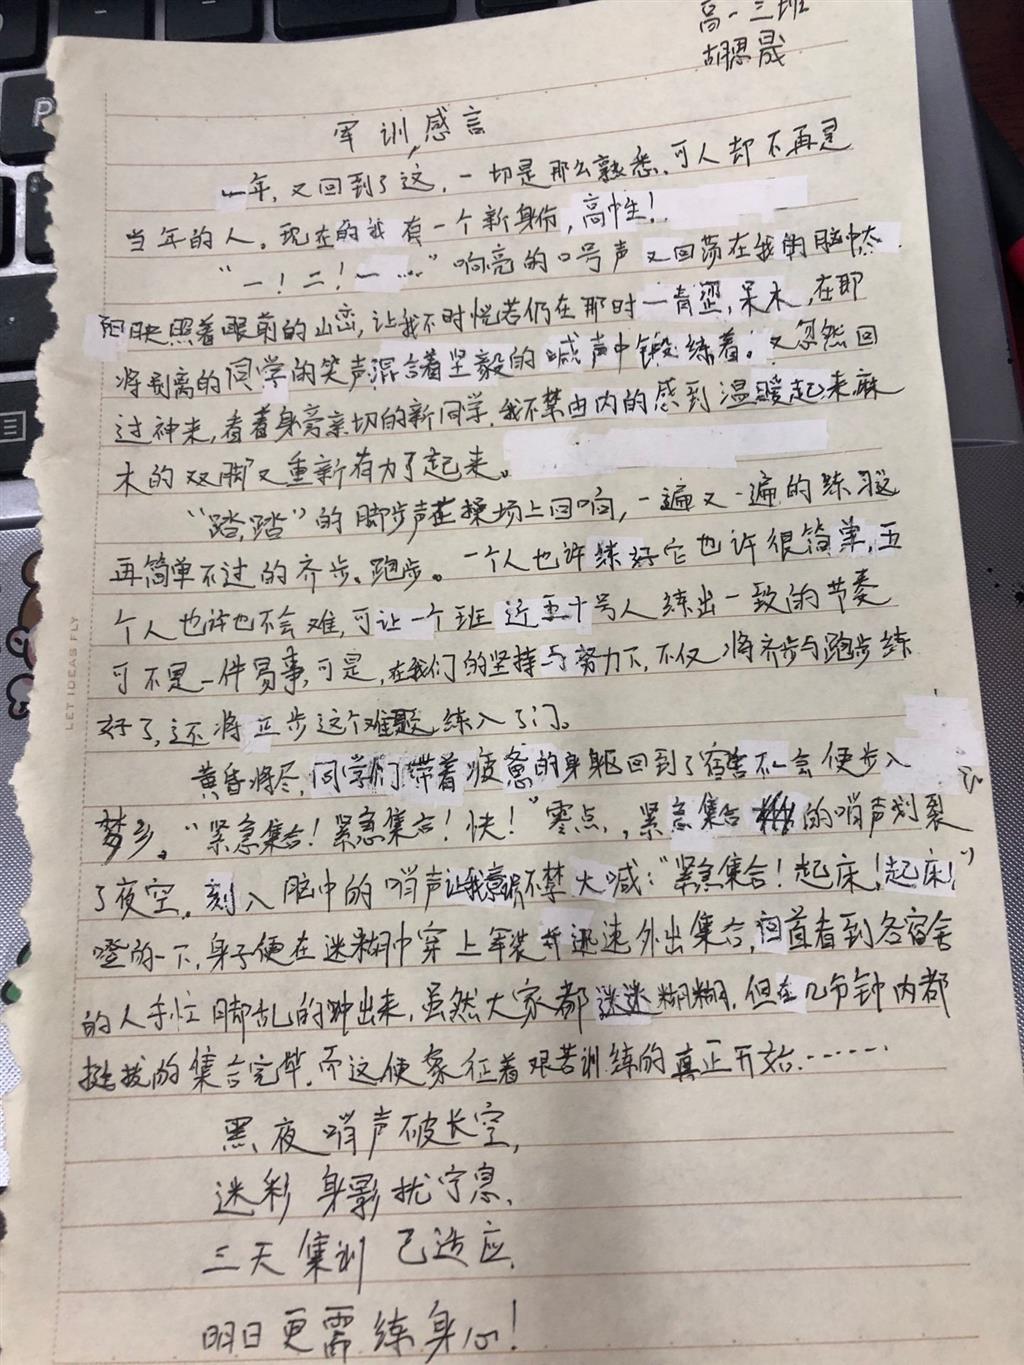 高一三班
胡思晟
军训感言
一年,又回到了这,一切是那么熟悉,可人却不再是
当年的人。现在的我有一个新身份,高性!
“一!二!一……”响亮的口号声又回荡在我的脑中态
阳映照着眼前的山峦,让我不时恍若仍在那时—青涩,呆木,在即
将别离的同学的笑声混合着坚毅的喊声中锻练着。又忽然回
过神来,看着身旁亲切的新同学,我不禁由内的感到温暖起来麻
木的双脚又重新有力了起来。
“踏,踏”的脚步声在操场上回响,一遍又一遍的练习这
再简单不过的齐步、跑步。一个人也许练好它也许很简单,五
个人也许也不会难,可让一个班近五十号人练出一致的节奏
可不是一件易事,可是,在我们的坚持与努力下,不仅将齐步与跑步练
好了,还将正步这个难题练入了门。
黄昏将尽,同学们带着疲惫的身躯回到了宿舍不一会便步入
梦乡。“紧急集合!紧急集合!快!”零点,紧急集合的哨声划裂
了夜空。刻入脑中的哨声让我不禁大喊:“紧急集合!起床!起床!”
噔的一下,身子便在迷糊中穿上军装并迅速外出集合,回首看到各宿舍
的人手忙脚乱的冲出来,虽然大家都迷迷糊糊,但在几分钟内都
挺拔的集合完毕,而这便象征着艰苦训练的真正开始……
黑夜哨声破长空,
迷彩身影扰宁息,
三天集训已适应,
明日更需练身心!
LET IDEAS FLY